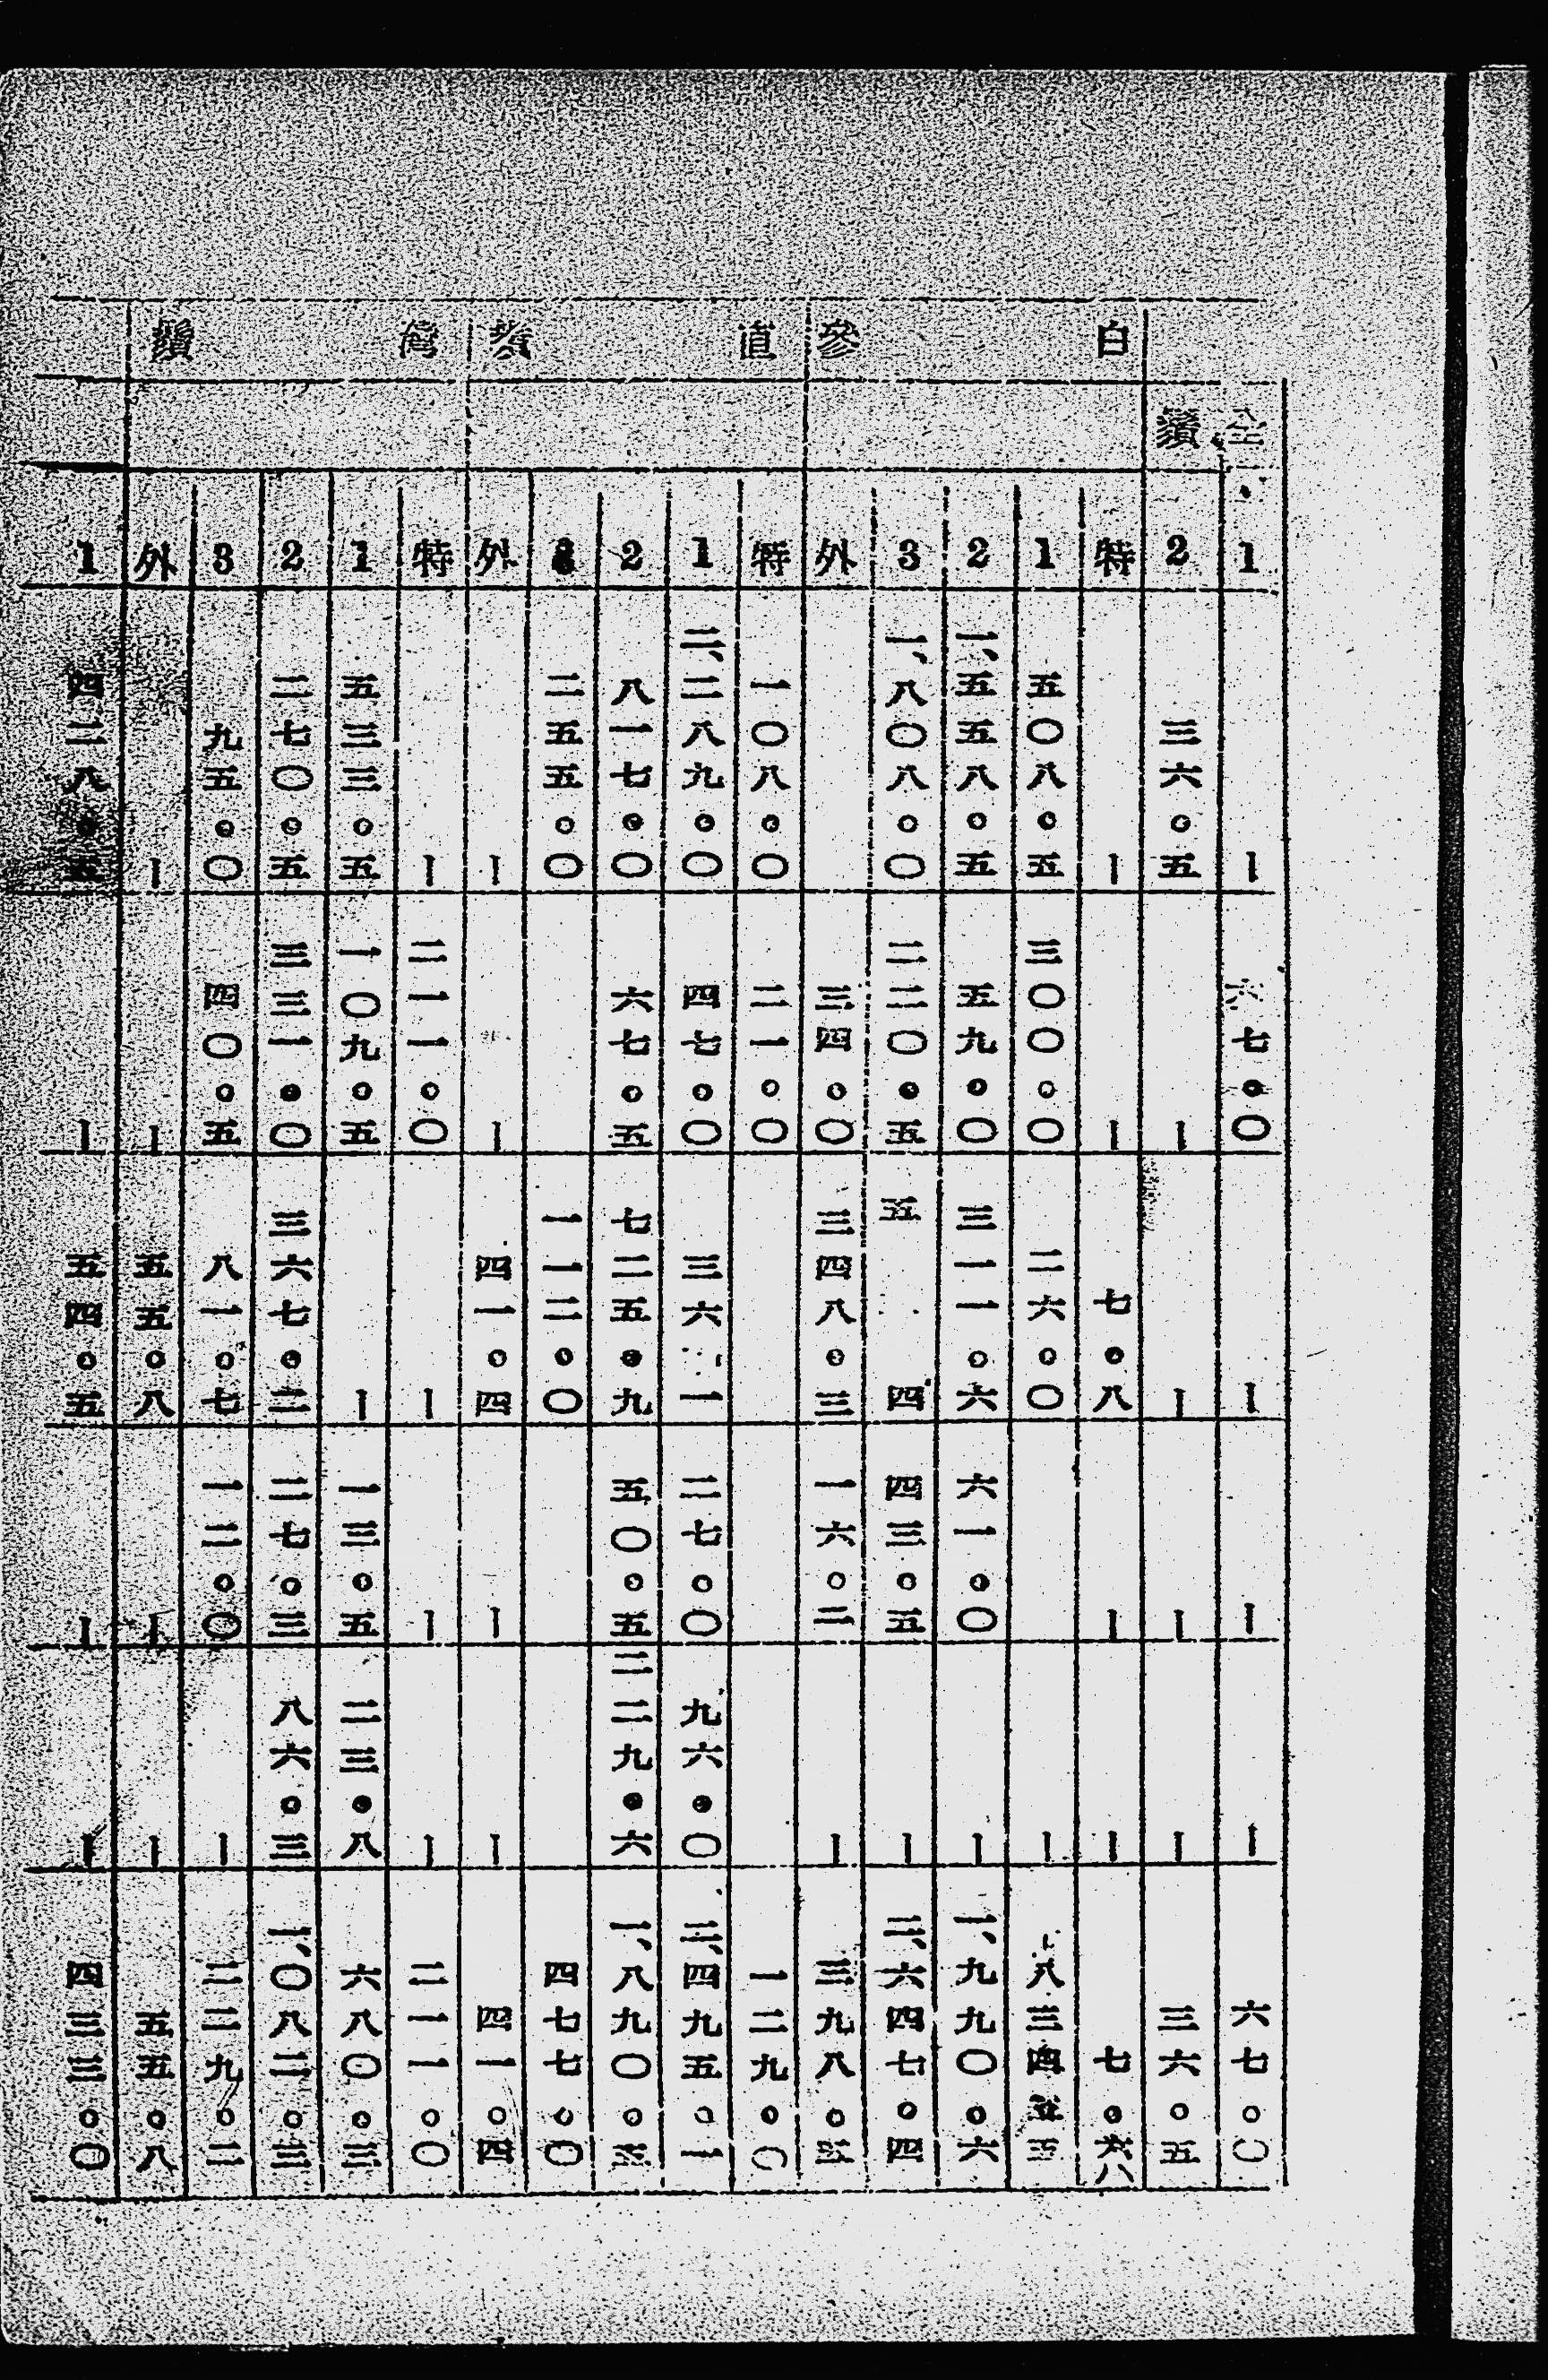 全鬚
1 ー 六七。〇 ー ー ー 六七。〇
2 三六。五 ー ー ー ー 三六。五
白參
特 ー ー 七。八 ー ー 七。八
1 五〇八。五 三〇〇。〇 二六。〇 ー 八三四。五
2 一、五五八。五 五九。〇 三一一。六 六一。〇 ー 一、九九〇。六
3 一、八〇八。〇 二二〇。五 五 四 四三。五 ー 二、六四七。四
外 三四。〇 三四八。三 一六。二 ー 三九八。五
直
特 一〇八。〇 二一。〇 一二九。〇
1 二、二八九。〇 四七。〇 三六 一 二七。〇 九六。〇 二、四九五。一
2 八一七。〇 六七。五 七二五。九 五〇。五 二二九。六 一、八九〇。五
3 二五五。〇 一一二。〇 四七七。〇
外 ー ー 四一。四 ー ー 四一。四
灣鬚
特 ー 二一一。〇 ー ー ー 二一一。〇
1 五三三。五 一〇九。五 ー 一三。五 二三。八 六八〇。三
2 二七〇。五 三三一。〇 三六七。二 二七。三 八六。三 一、〇八二。三
3 九五。〇 四〇。五 八一。七 一二。〇 ー 二二九。二
外 ー ー 五五。八 ー ー 五五。八
1 四二八。五 ー 五四。五 ー ー 四三三。〇